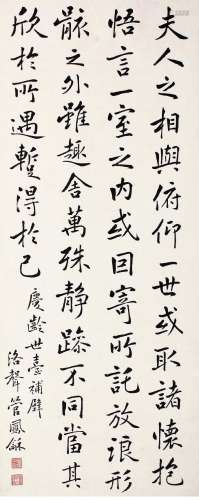 夫人之相與俯仰一世或取諸懷抱
悟言一室之內或因寄所託放浪形
骸之外雖趣舍萬殊靜躁不同當其
欣於所遇蹔得於己
慶齡世臺補壁
洛聲管鳳龢